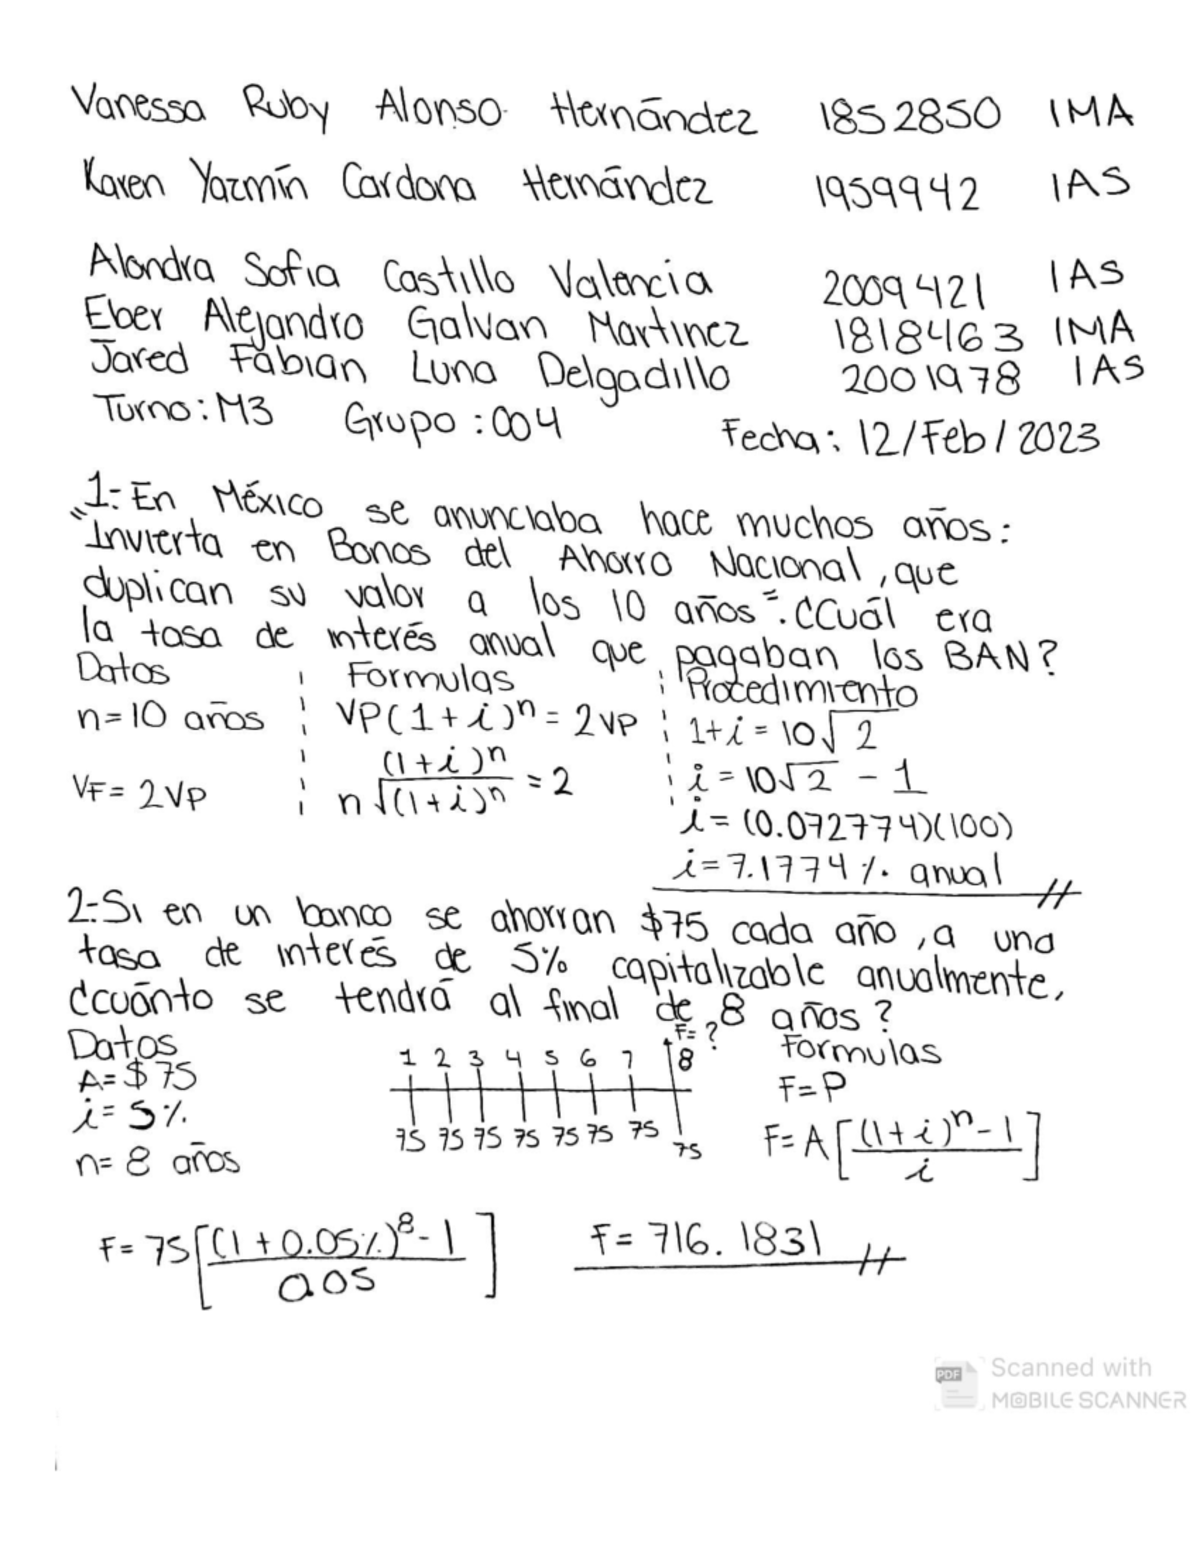 Vanessa Ruby Alonso Hernández 1852850 IMA
Karen Yazmín Cardona Hernández 1959942 IAS
Alondra Sofia Castillo Valencia 2009421 IAS
Eber Alejandro Galvan Martinez 1818463 IMA
Jared Fabian Luna Delgadillo 2001978 IAS
Turno: M3 Grupo: 004 Fecha: 12/Feb/2023
1.- En México se anunciaba hace muchos años:
"Invierta en Bonos del Ahorro Nacional, que
duplican su valor a los 10 años". ¿Cuál era
la tasa de interés anual que pagaban los BAN?
Datos Formulas Procedimiento
n=10 años VP(1+i)^n = 2VP 1+i = 10√2
VF= 2VP (1+i)^n / n√(1+i)^n = 2 i = 10√2 - 1
i= (0.072774)(100)
i=7.1774%. anual
2.- Si en un banco se ahorran $75 cada año, a una
tasa de interés de 5% capitalizable anualmente,
¿cuánto se tendrá al final de 8 años?
Datos F= ? Formulas
A= $75 1 2 3 4 5 6 7 8 F=P
i= 5%.
n= 8 años 75 75 75 75 75 75 75 75 F= A[((1+i)^n - 1) / i]
F= 75[((1+0.05%.)^8 - 1) / 0.05] F= 716.1831
PDF Scanned with
MOBILE SCANNER